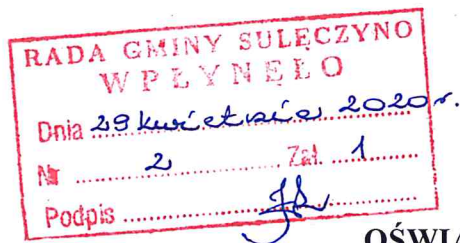 RADA GMINY SULĘCZYNO
WPŁYNĘŁO
Dnia 29 kwietnia 2020 r.
Nr 2 Zał. 1
Podpis
OŚWIA